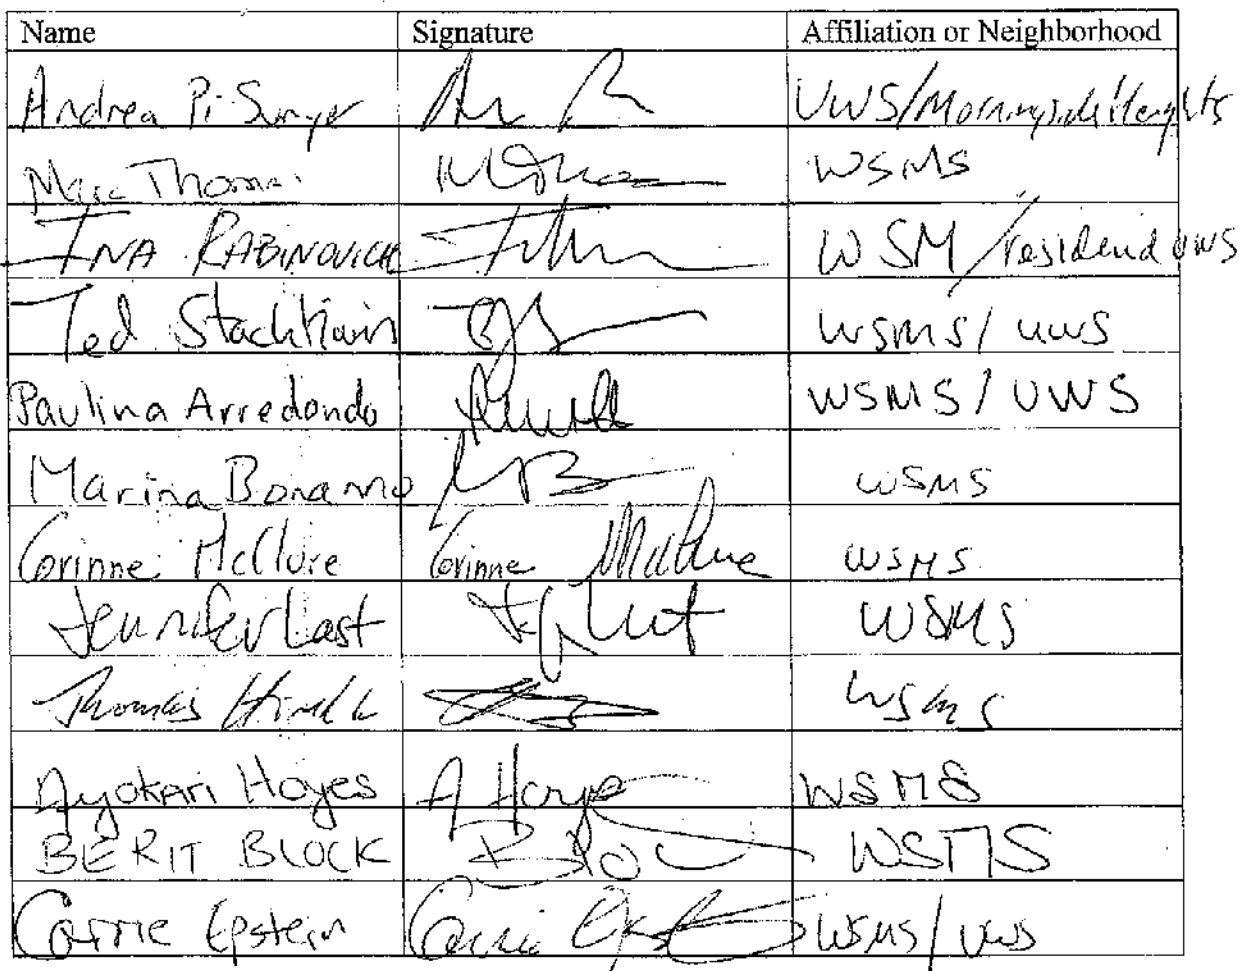 Name Signature Affiliation or Neighborhood
Andrea Pi-Sunyer UWS/Morningside Heights
Thomas WSMS
INA RABINOVICH WSM/resident UWS
Ted WSMS/UWS
Paulina Arredondo WSMS/UWS
Marina Bonanno WSMS
Corinne McClure Corinne McClure WSMS
Jennifer Last WSMS
Thomas WSMS
Ayokari Hoyes A Hoyes WSMS
BERIT BLOCK WSMS
Carrie Epstein Carrie WSMS/UWS